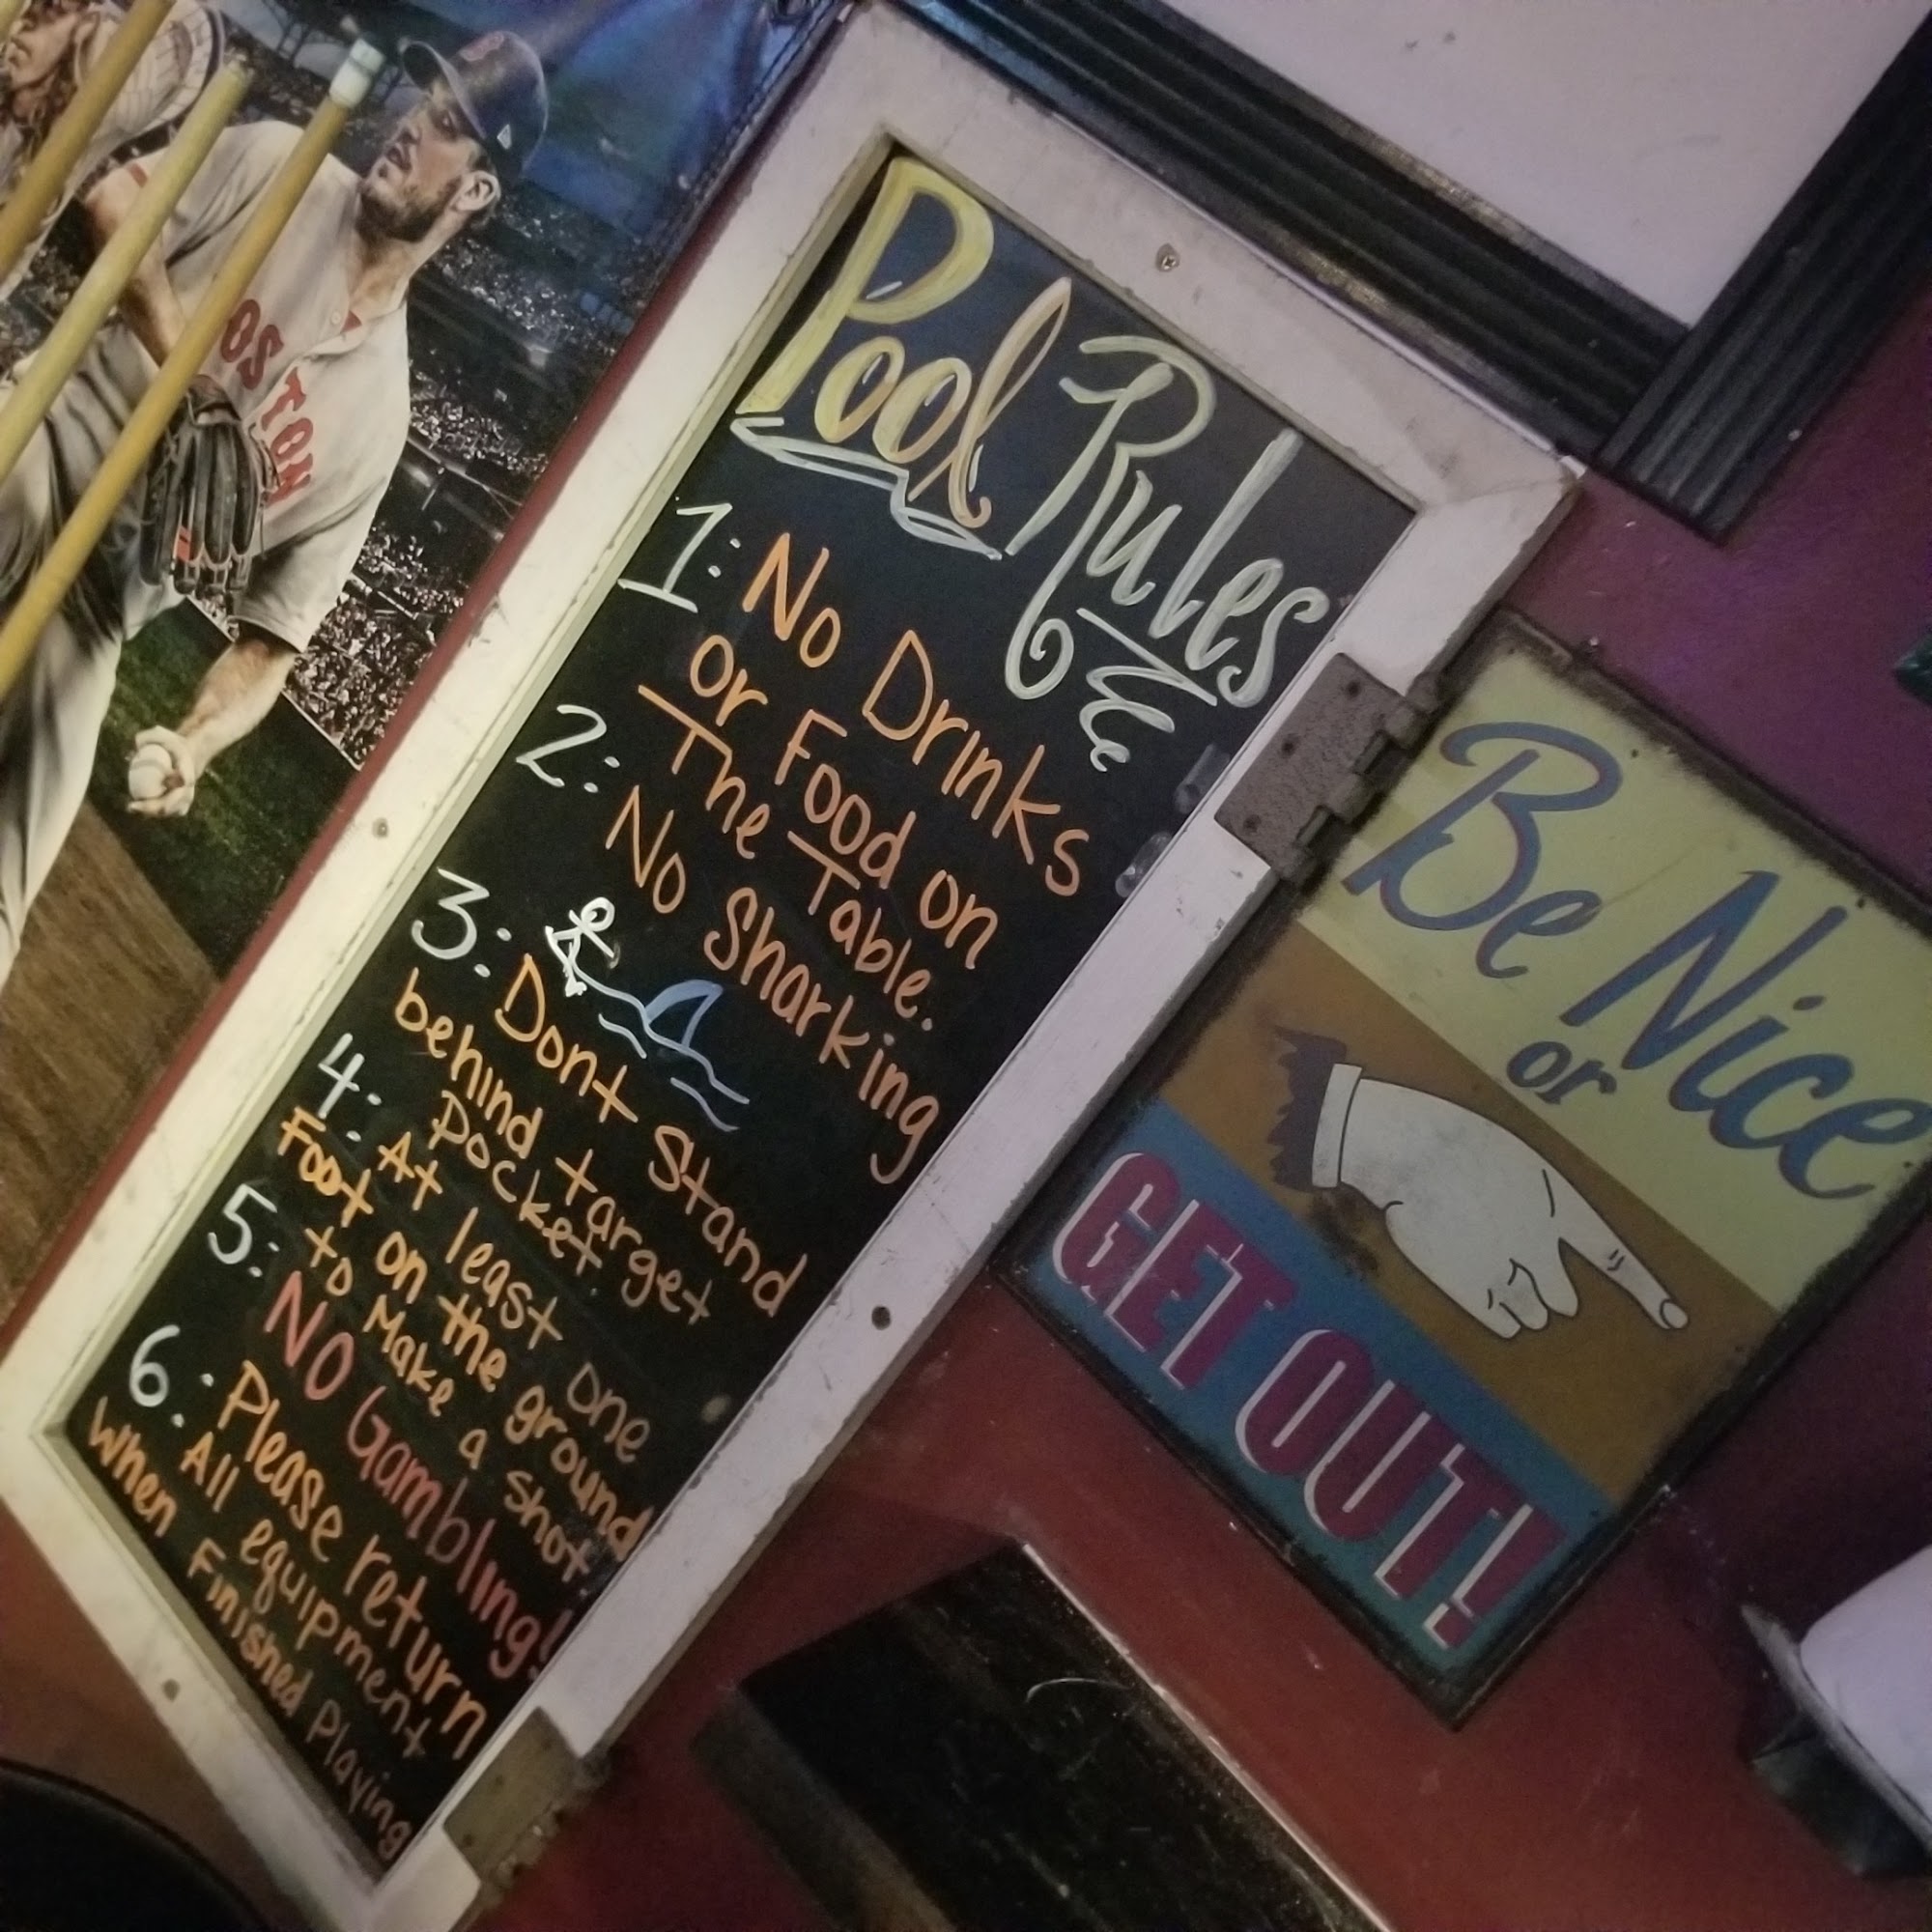 Pool Rules
1: No Drinks
or Food on
The Table.
2: No Sharking
3: Dont Stand
behind target
pocket.
4: At least one
Foot on the ground
to Make a shot.
5: NO Gambling!
6: Please return
All equipment
when Finished Playing
Be Nice
or
GET OUT!
OSTON